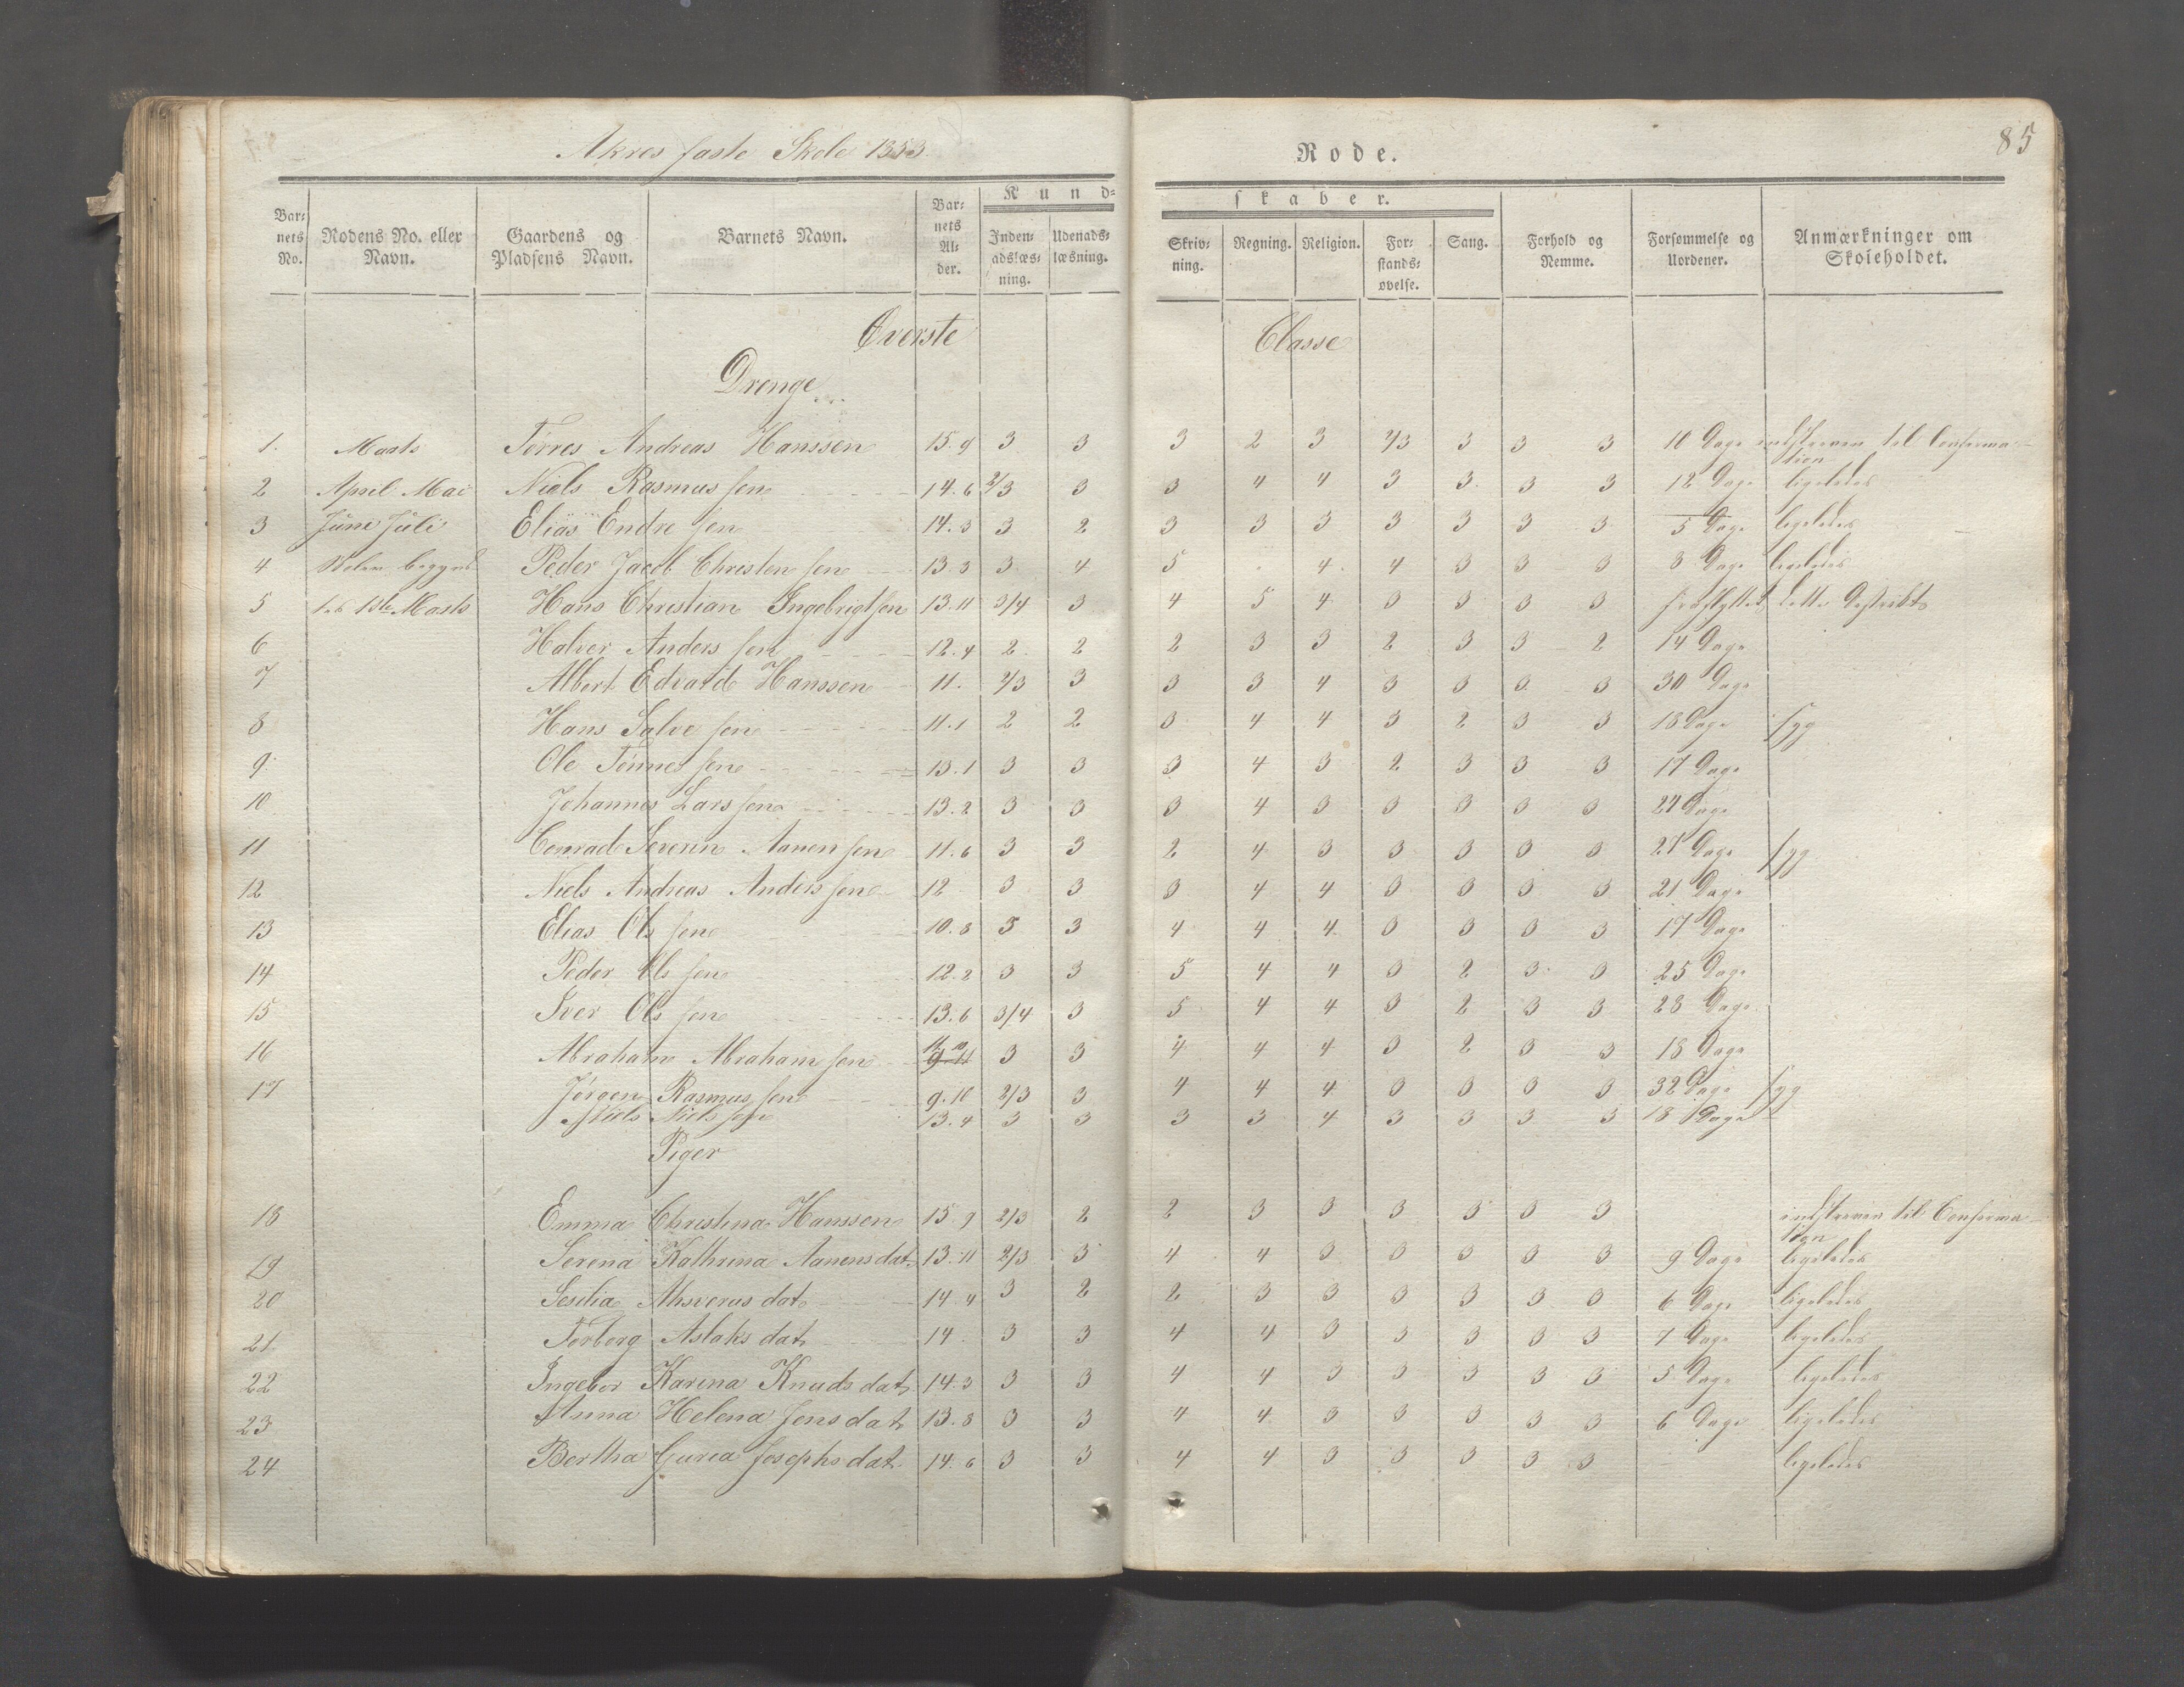 Akres faste Skole 1853.
Rode.
85
Bar-
nets
No.
Rodens No. eller
Navn.
Gaardens og
Pladsens Navn.
Barnets Navn.
Bar-
nets
Al-
der.
Kund-
skaber.
Inden-
adslæs-
ning.
Udenads-
læsning.
Skriv-
ning.
Regning.
Religion.
For-
stands-
øvelse.
Sang.
Forhold og
Nemme.
Forsømmelse og
Uordener.
Anmærkninger om
Skoleholdet.
Øverste Classe
Drenge
1. Marts Tørres Andreas Hanssen 15.9 3 3 3 2 3 2/3 3 3 3 10 Dage indskreven til Confirma-
tion
2 April Mai Niels Rasmussen 14.6 2/3 3 3 4 4 3 3. 3 3 12 Dage ligeledes
3 Juni Juli Elias Endresen 14.3 3 2 3 3 3 3 3 3 3 5 Dage ligeledes
4 Skolen begynd Peder Jacob Christensen 13.3 3 4 5 4 4 3 3 3 3 Dage ligeledes
5 den 1ste Marts Hans Christian Ingebrigtsen 13.11 3/4 3 4 5 4 3 3 3 3 fraflyttet dette Distrikts
6 Halver Anderssen 12.4 2 2 2 3 3 2 3 3 2 14 Dage
7 Albert Edvard Hanssen 11. 2/3 3 3 3 4 3 3 3 3 30 Dage
8 Hans Salvesen 11.1 2 2 3 4 4 3 2 3 3 18 Dage syg
9 Ole Tønnessen 13.1 3 3 3 4 3 2 3 3 3 17 Dage
10 Johannes Larssen 13.2 3 3 3 4 3 3 3 3 3 24 Dage
11 Conrad Severin Aanensen 11.6 3 3 2 4 3 3 3 3 3 21 Dage syg
12 Niels Andreas Anderssen 12 3 3 3 4 4 3 3 3 3 21 Dage
13 Elias Olssen 10.8 3 3 4 4 4 3 3 3 3 17 Dage
14 Peder Olssen 12.2 3 3 5 4 4 3 2 3 3 25 Dage
15 Iver Olssen 13.6 3/4 3 5 4 4 3 2 3 3 28 Dage
16 Abraham Abrahamsen 3 3 4 4 4 3 2 3 3 18 Dage
17 Jørgen Rasmussen 9.10 2/3 3 4 4 4 3 3 3 3 32 Dage syg
Niels Nielssen 13.4 3 3 3 3 4 3 3 3 3 18 Dage
Piger
18 Emma Christina Hanssen 15.9 2/3 2 2 3 3 3 3 3 3 indskreven til Confirma-
tion
19 Serena Kathrina Aanensdat. 13.11 2/3 3 4 4 3 3 3 3 3 9 Dage ligeledes
20 Sesilia Ahsverusdat. 14.4 3 2 2 3 3 3 3 3 3 6 Dage ligeledes
21 Torborg Aslaksdat. 14. 3 3 4 4 3 3 3 3 3 7 Dage ligeledes
22 Ingebor Karina Knudsdat. 14.3 3 3 4 4 3 3 3 3 3 5 Dage ligeledes
23 Anna Helena Jensdat. 13.8 3 3 4 4 3 3 3 3 3 6 Dage ligeledes
24 Bertha Gurea Josephsdat. 14.6 3 3 4 4 3 3 3 3 3 ligeledes